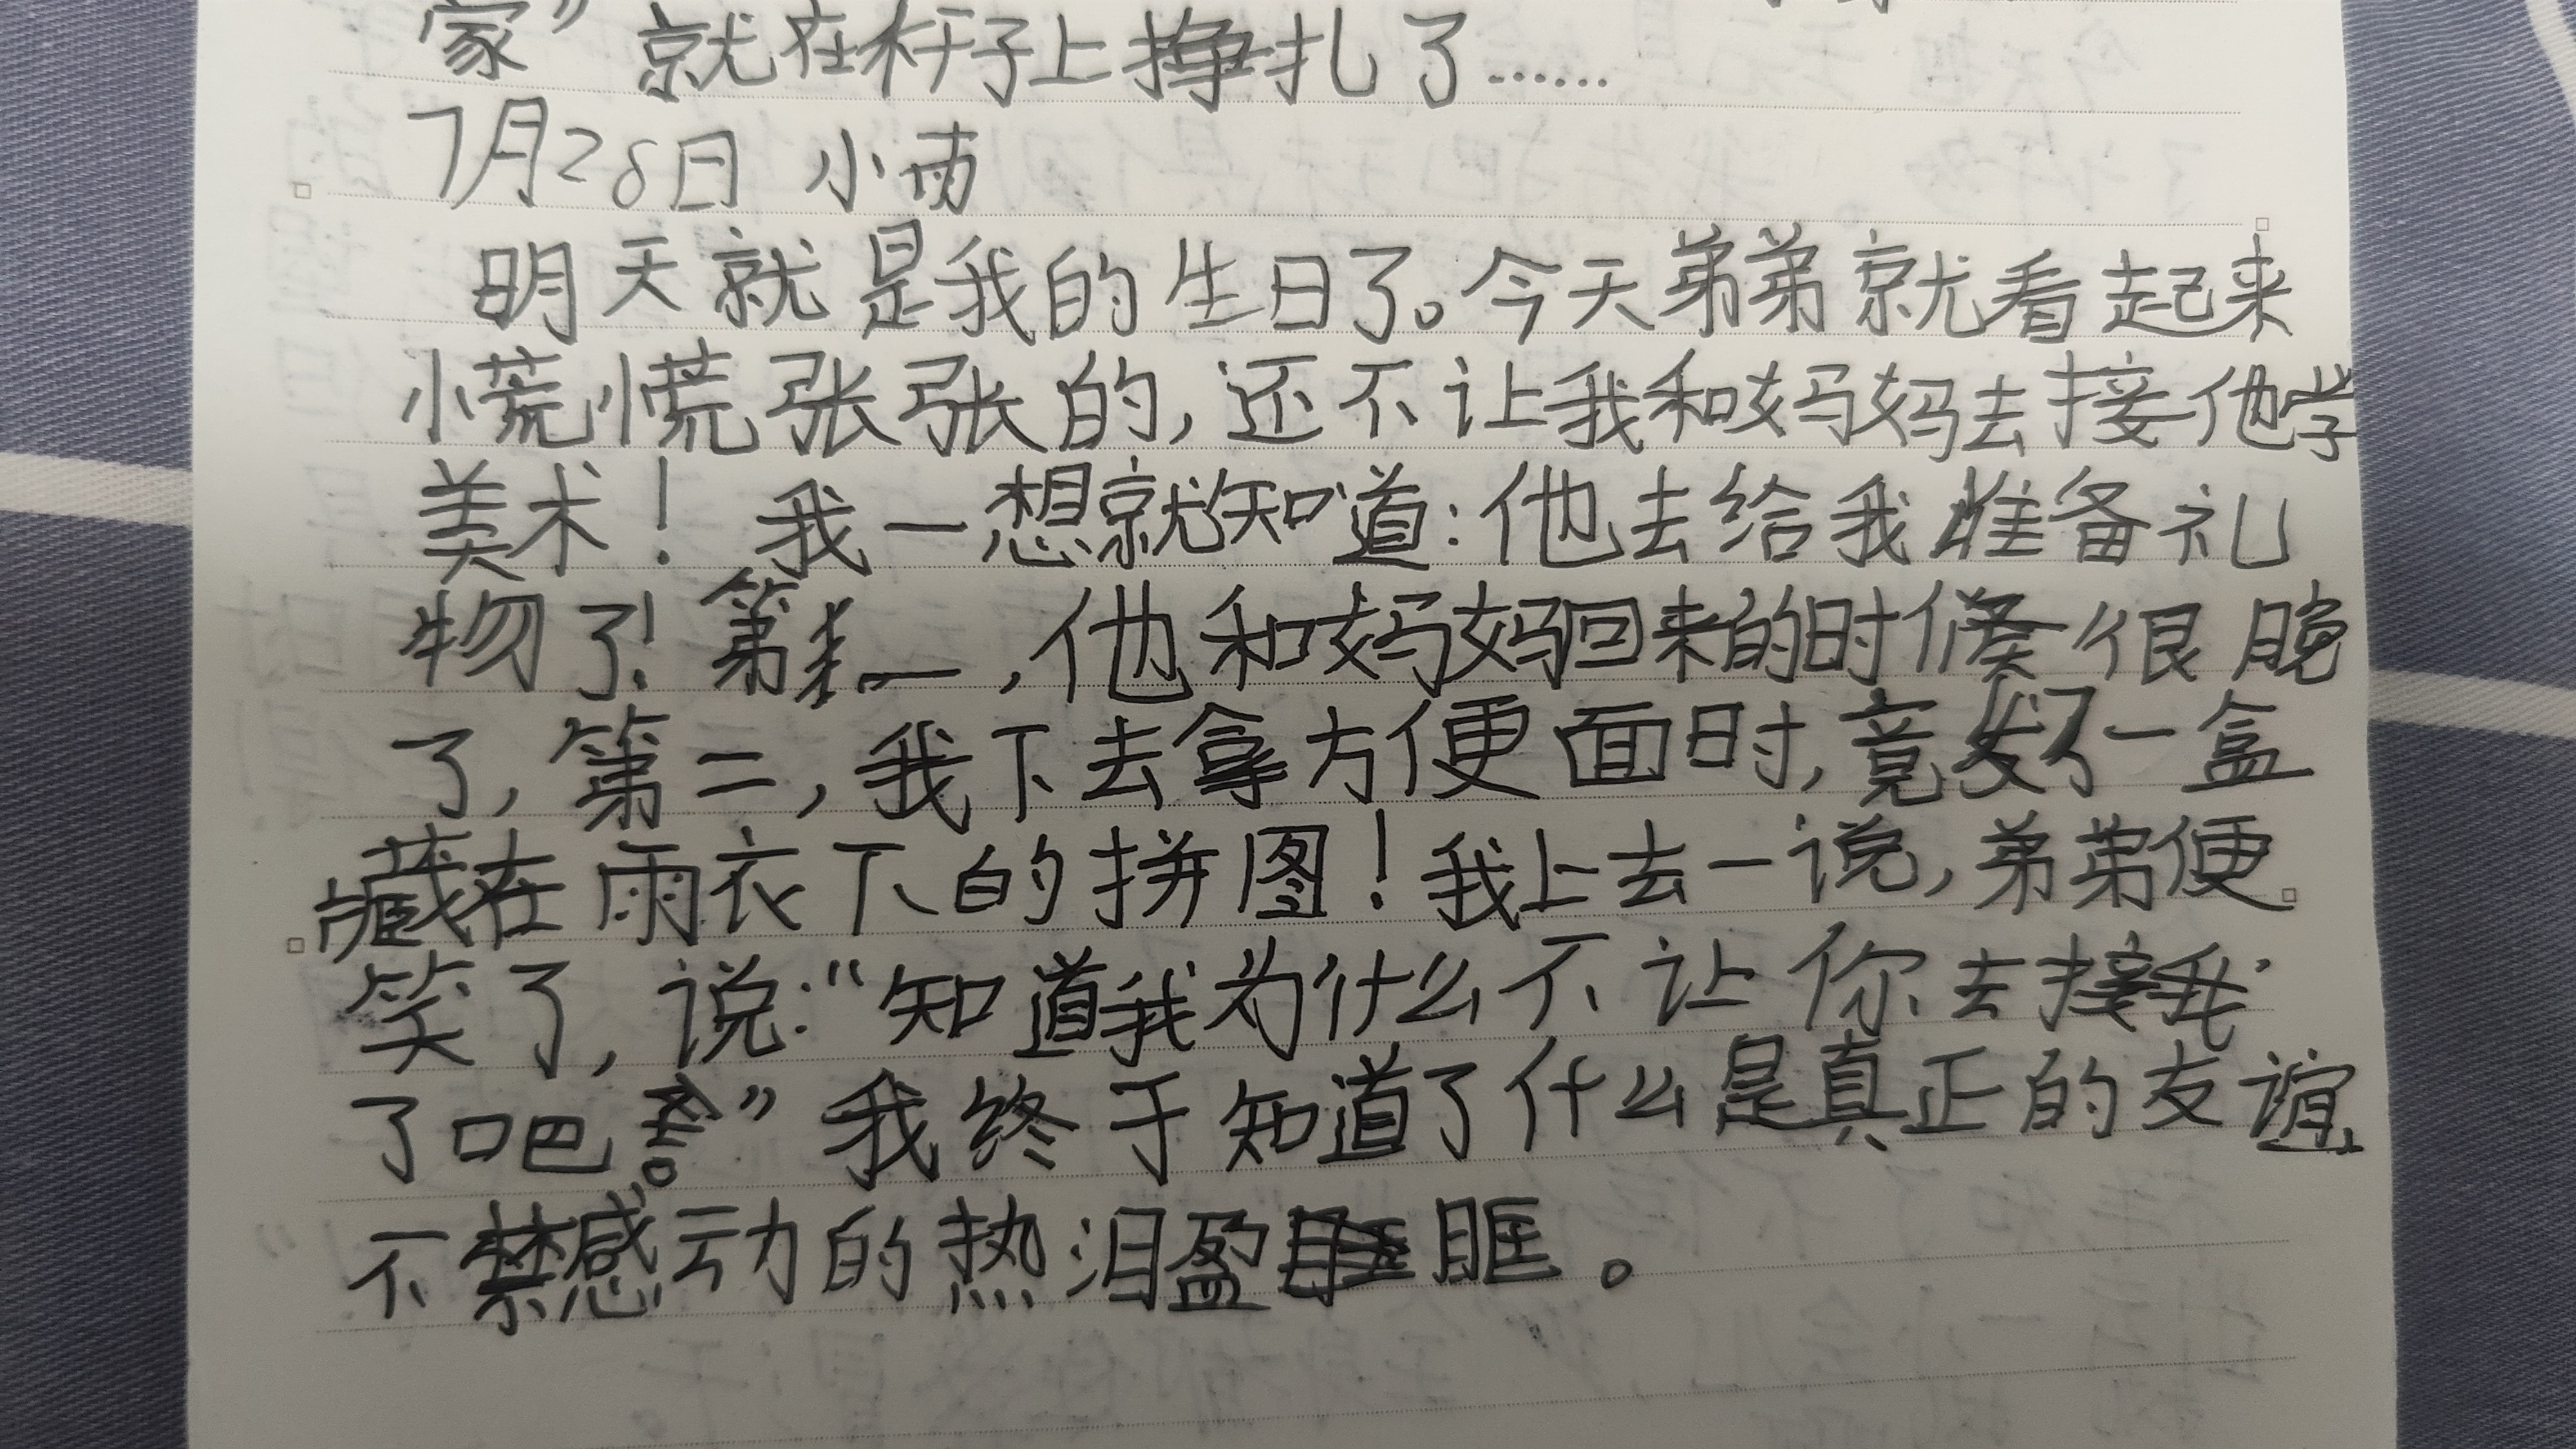 家”就在杆子上挣扎了……
7月28日 小雨
明天就是我的生日了。今天弟弟就看起来
慌慌张张的,还不让我和妈妈去接他学
美术! 我一想就知道:他去给我准备礼
物了!第一,他和妈妈回来的时候很晚
了,第二,我下去拿方便面时,竟发了一盒
藏在雨衣下的拼图!我上去一说,弟弟便
笑了,说:“知道我为什么不让你去接我
了吧。”我终于知道了什么是真正的友谊,
不禁感动的热泪盈眶。